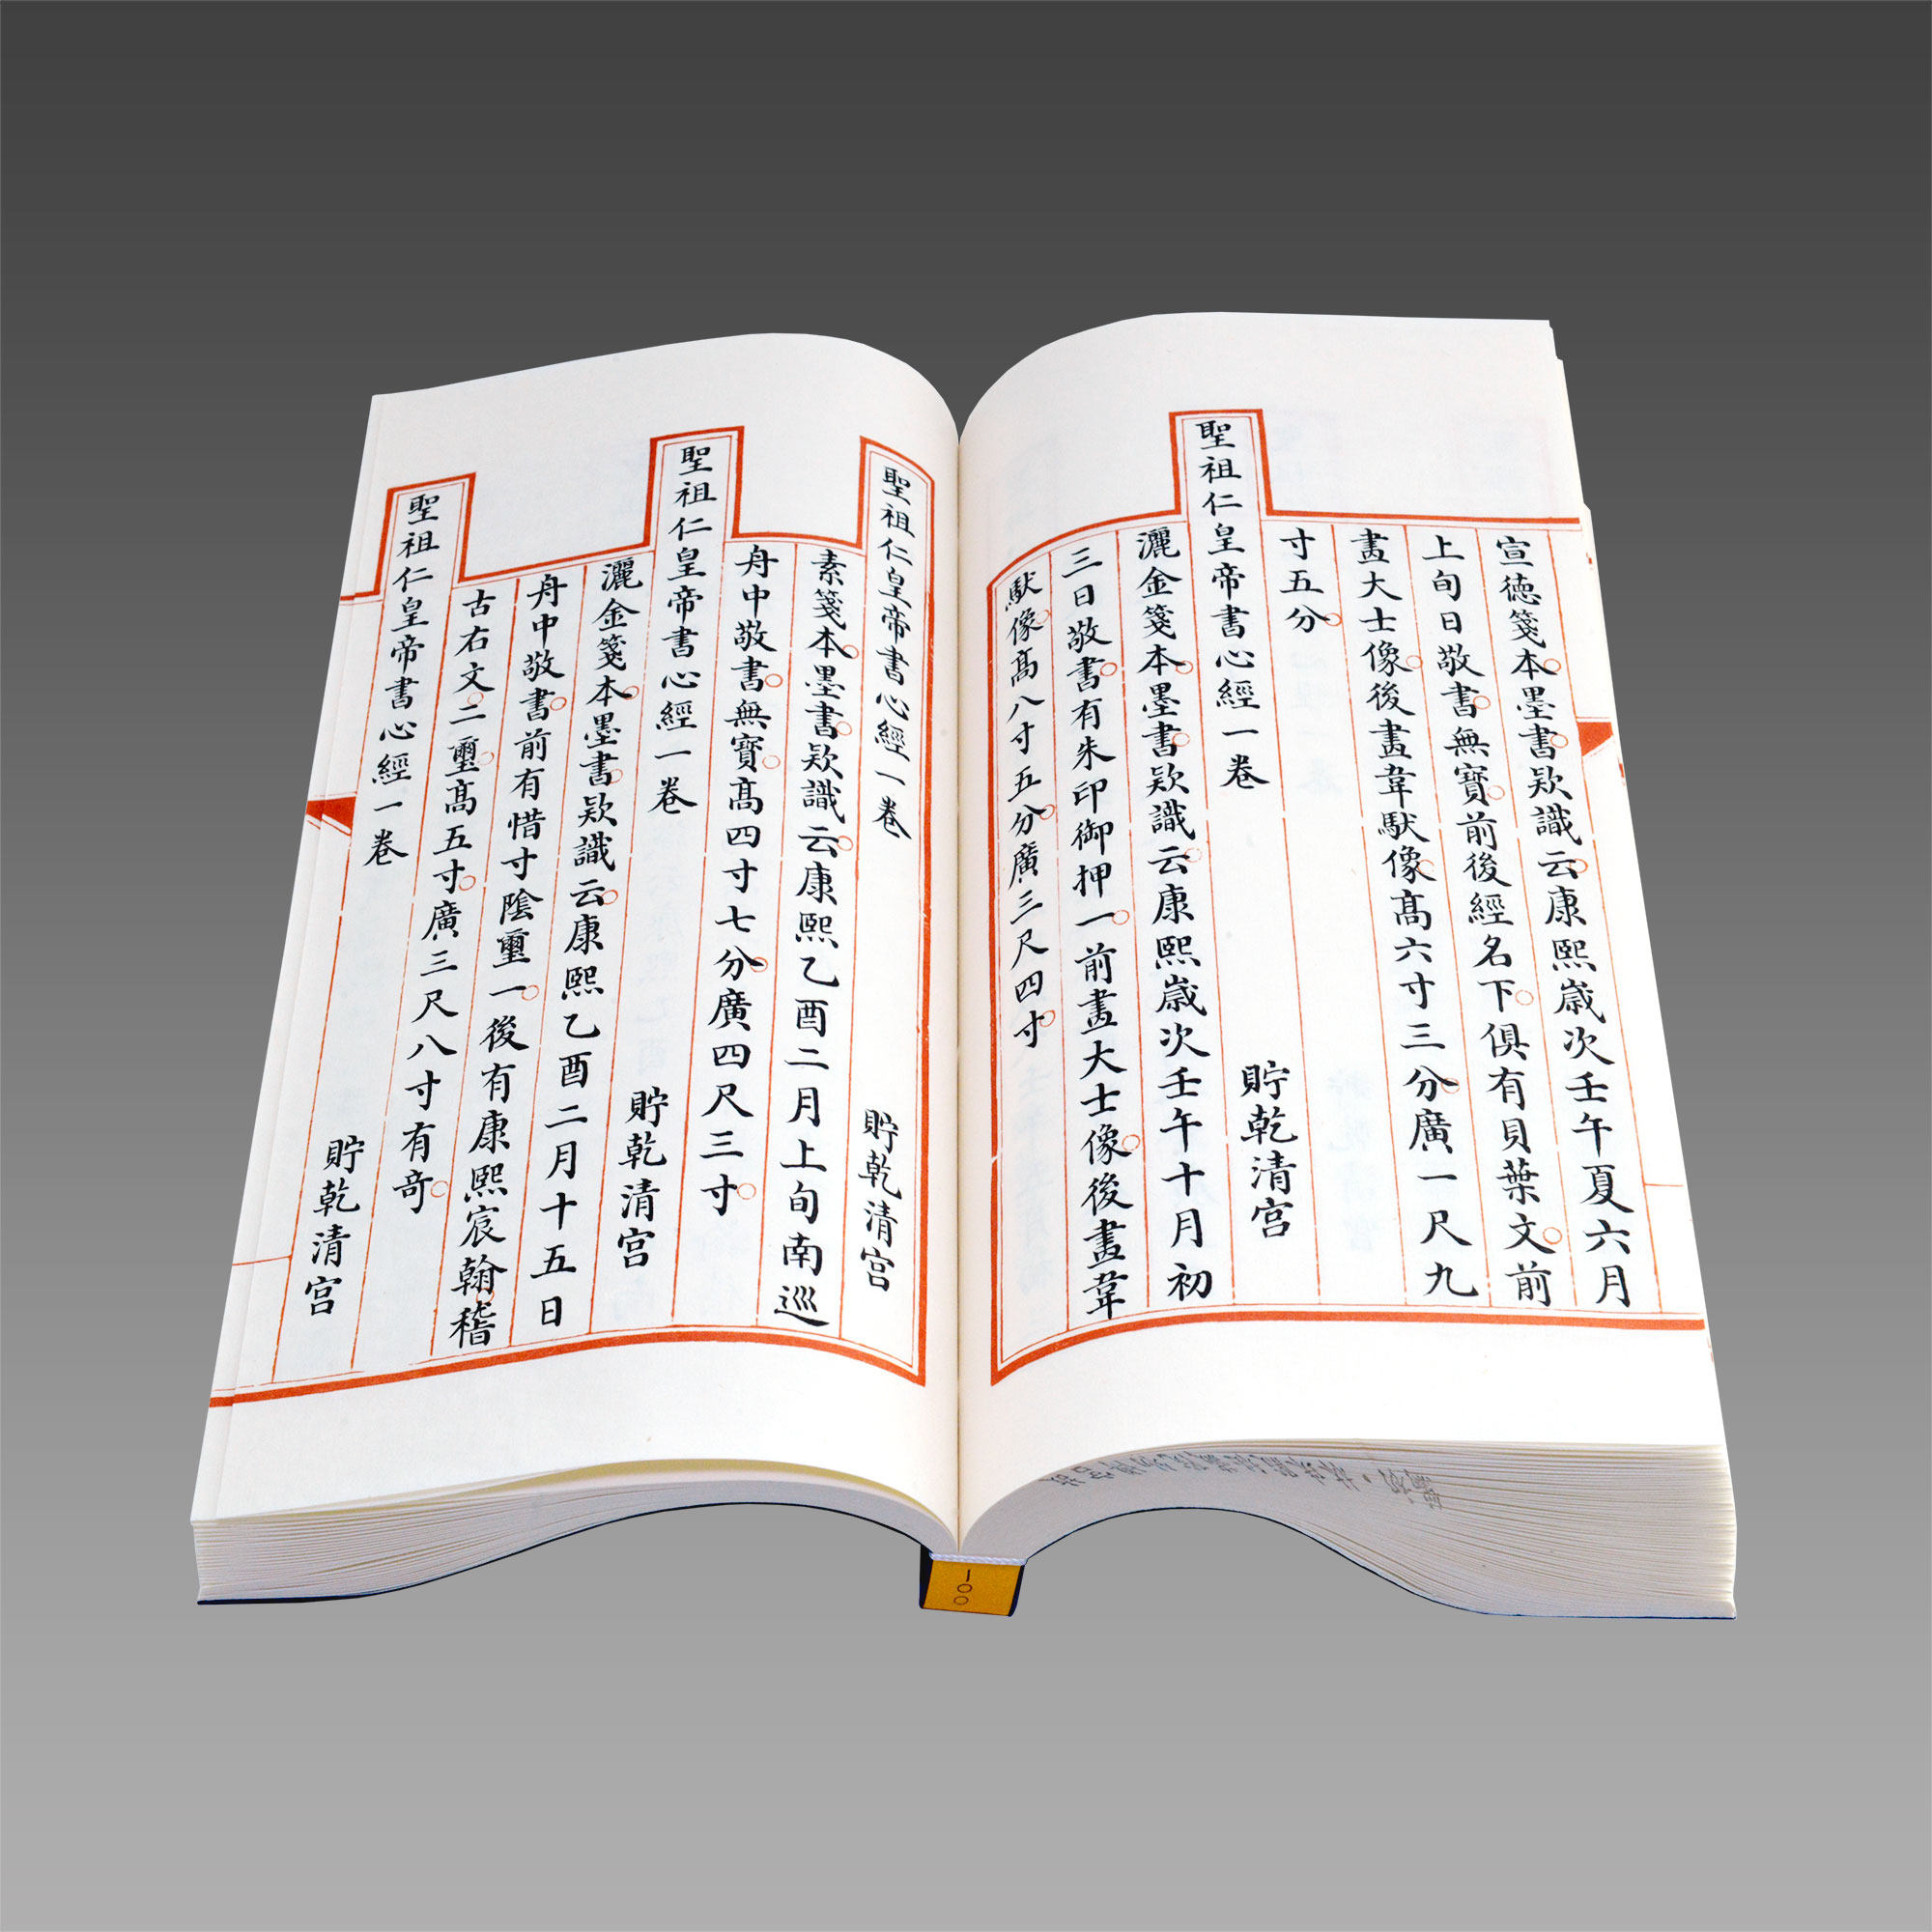 宣德箋本墨書欵識云康熙歲次壬午夏六月
上旬日敬書無寶前後經名下俱有貝葉文前
畫大士像後畫韋馱像高六寸三分廣一尺九
寸五分
聖祖仁皇帝書心經一卷 貯乾清宮
灑金箋本墨書欵識云康熙歲次壬午十月初
三日敬書有朱印御押一前畫大士像後畫韋
馱像高八寸五分廣三尺四寸
聖祖仁皇帝書心經一卷 貯乾清宮
素箋本墨書欵識云康熙乙酉二月上旬南巡
舟中敬書無寶高四寸七分廣四尺三寸
聖祖仁皇帝書心經一卷 貯乾清宮
灑金箋本墨書欵識云康熙乙酉二月十五日
舟中敬書前有惜寸陰璽一後有康熙宸翰稽
古右文二璽高五寸廣三尺八寸有奇
聖祖仁皇帝書心經一卷 貯乾清宮
一〇〇